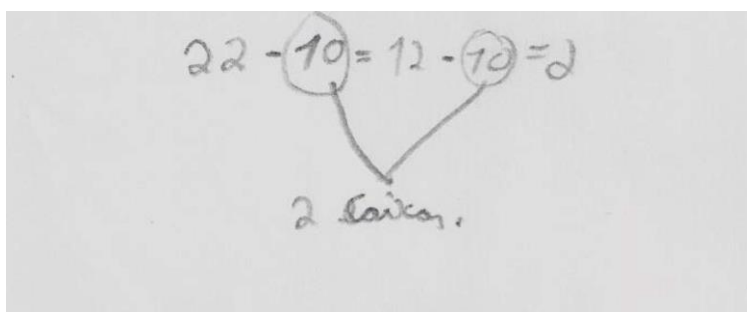 22 - 10 = 12 - 10 = 2
2 caixas.